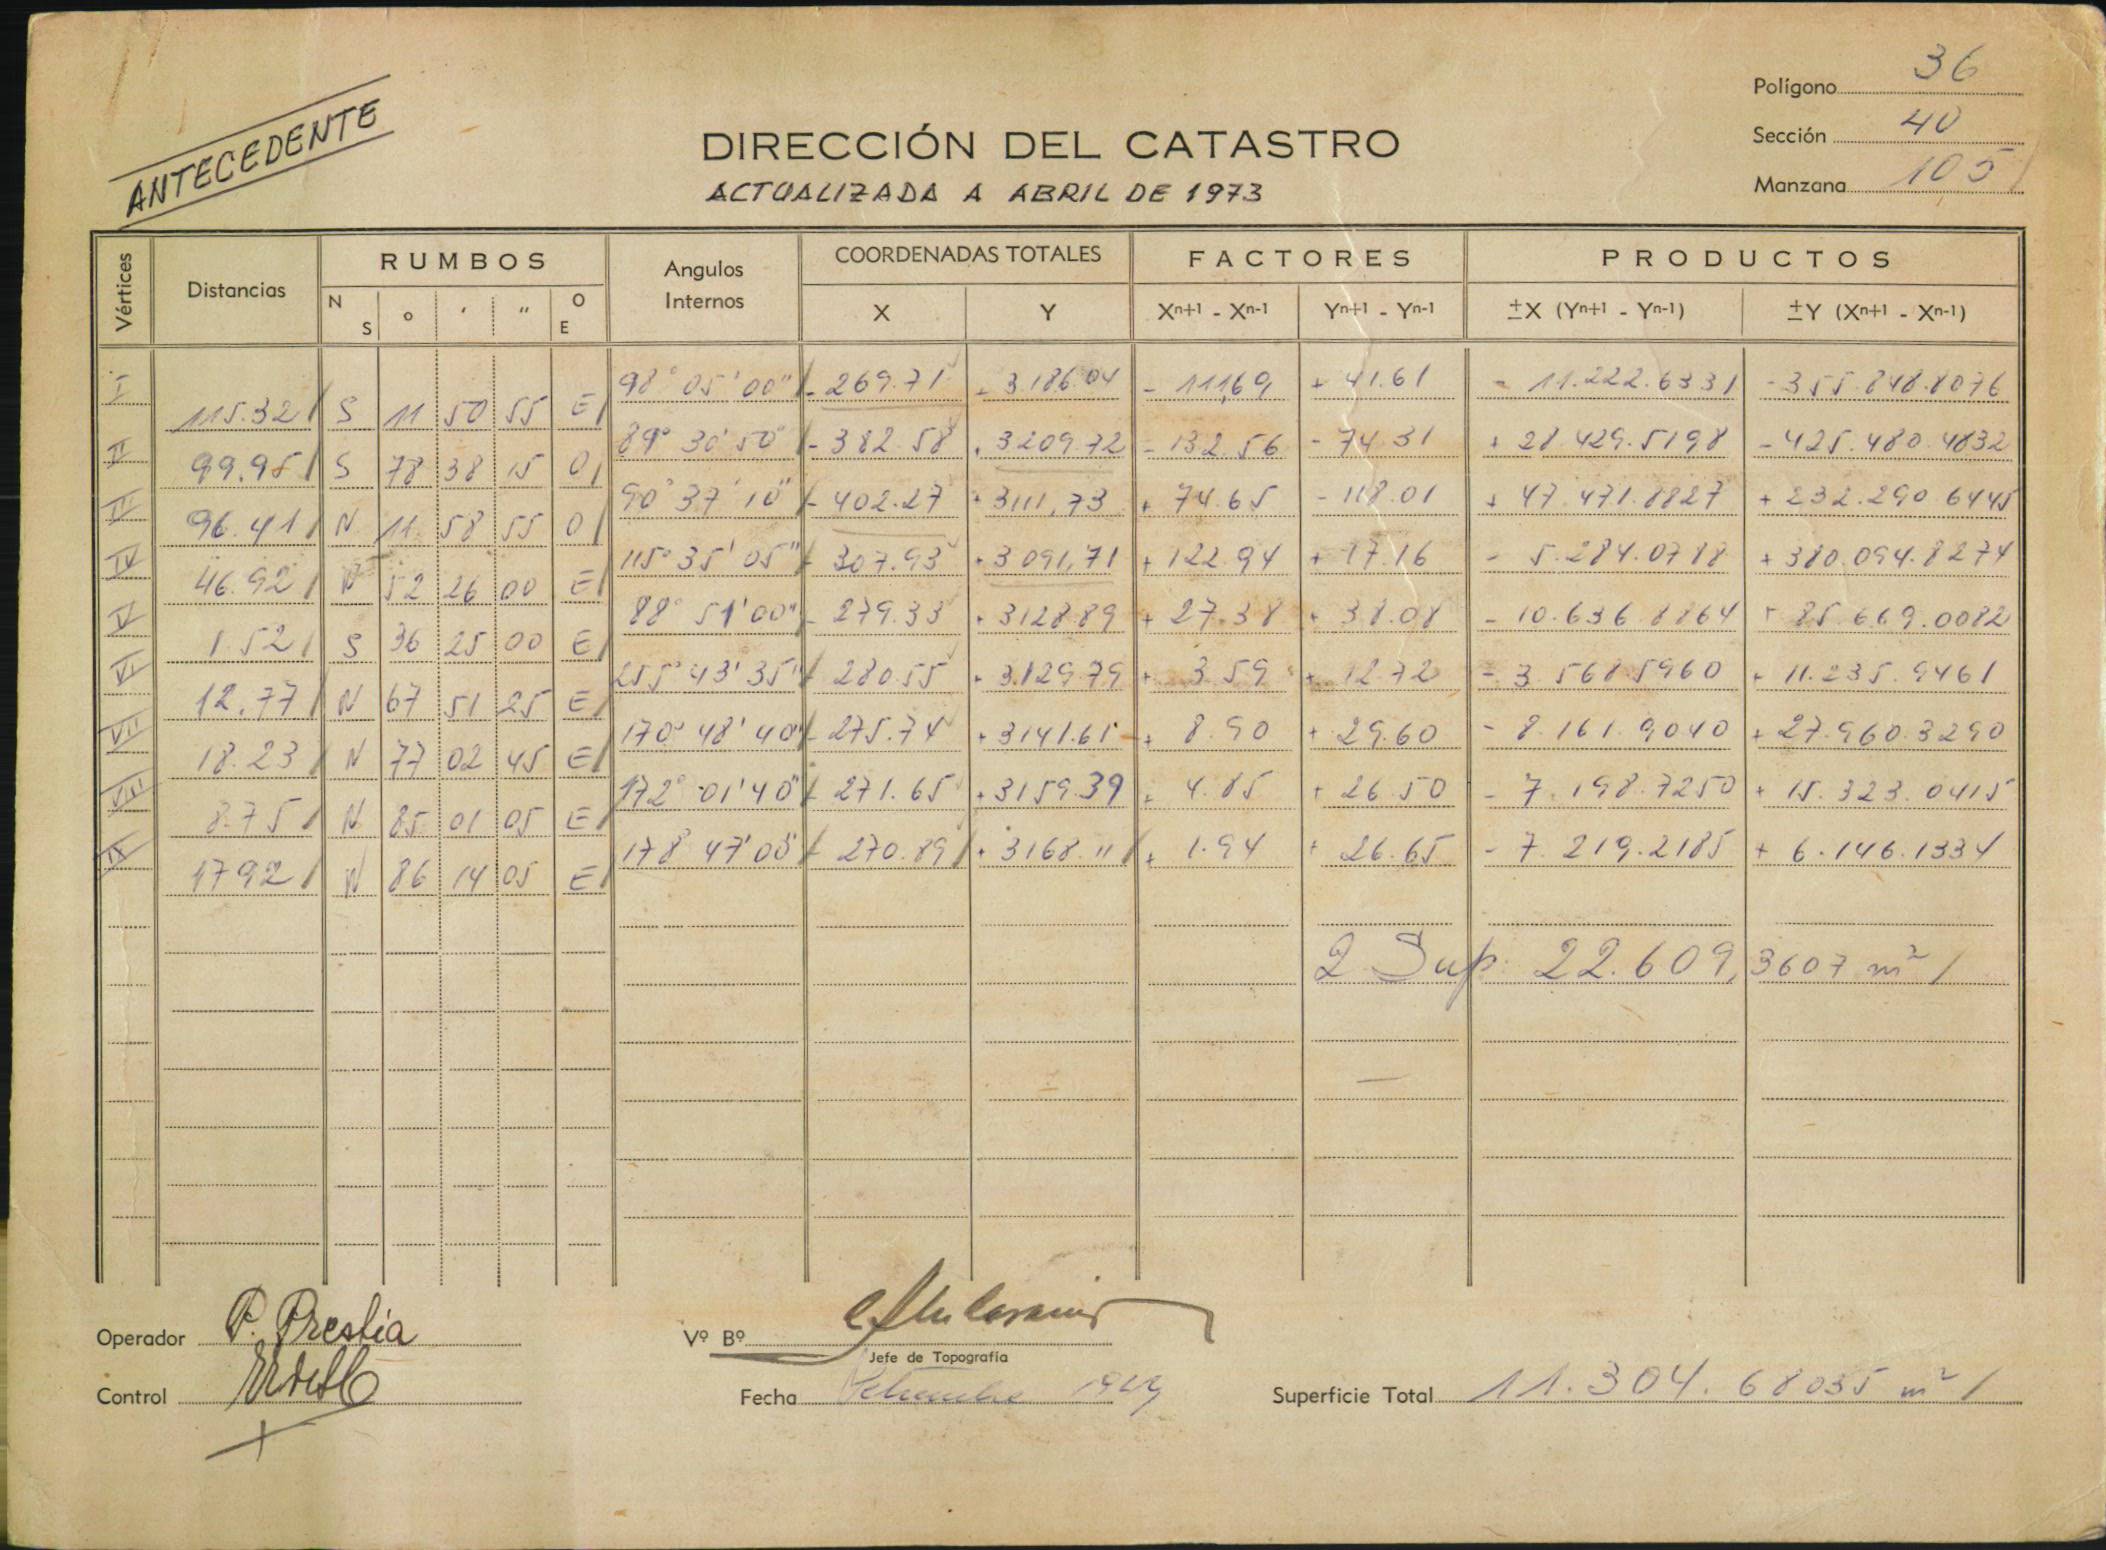 Polígono 36
ANTECEDENTE
DIRECCIÓN DEL CATASTRO
Sección 40
ACTUALIZADA A ABRIL DE 1973
Manzana 105
Vértices Distancias RUMBOS Angulos Internos COORDENADAS TOTALES FACTORES PRODUCTOS
N S ° ' " O E X Y Xn+1 - Xn-1 Yn+1 - Yn-1 ±X (Yn+1 - Yn-1) ±Y (Xn+1 - Xn-1)
I 98° 05' 00" - 269.71 + 3186.04 - 111,69 + 41.61 - 11.222.6331 - 355.848.8076
115.32 S 11 50 55 E
II 89° 30' 50" - 382.58 + 3209.72 - 132.56 - 74.31 + 28.429.5198 - 425.480.4832
99.95 S 78 38 15 O
III 90° 37' 10" - 402.27 + 3111,73 + 74.65 - 118.01 + 47.471.8827 + 232.290.6445
96.41 N 11 58 55 O
IV 115° 35' 05" - 307.93 + 3091,71 + 122.94 + 17.16 - 5.284.0788 + 380.094.8274
46.92 N 52 26 00 E
V 88° 51' 00" - 279.33 + 3128.89 + 27.38 + 38.08 - 10.636.8864 + 85.669.0082
1.52 S 36 25 00 E
VI 255° 43' 35" - 280.55 + 3129.79 + 3.59 + 12.72 - 3.568.5960 + 11.235.9461
12.77 N 67 51 25 E
VII 170° 48' 40" - 275.74 + 3141.61 + 8.90 + 29.60 - 8.161.9040 + 27.960.3290
18.23 N 77 02 45 E
VIII 172° 01' 40" - 271.65 + 3159.39 + 4.85 + 26.50 - 7.198.7250 + 15.323.0415
8.75 N 85 01 05 E
IX 178° 47' 00" - 270.89 + 3168.11 + 1.94 + 26.65 - 7.219.2185 + 6.146.1334
17.92 N 86 14 05 E
2 Sup. 22.609,3607 m²
Operador P. Prestia
Vº Bº
Jefe de Topografía
Control
Fecha
Superficie Total 11.304.68035 m²